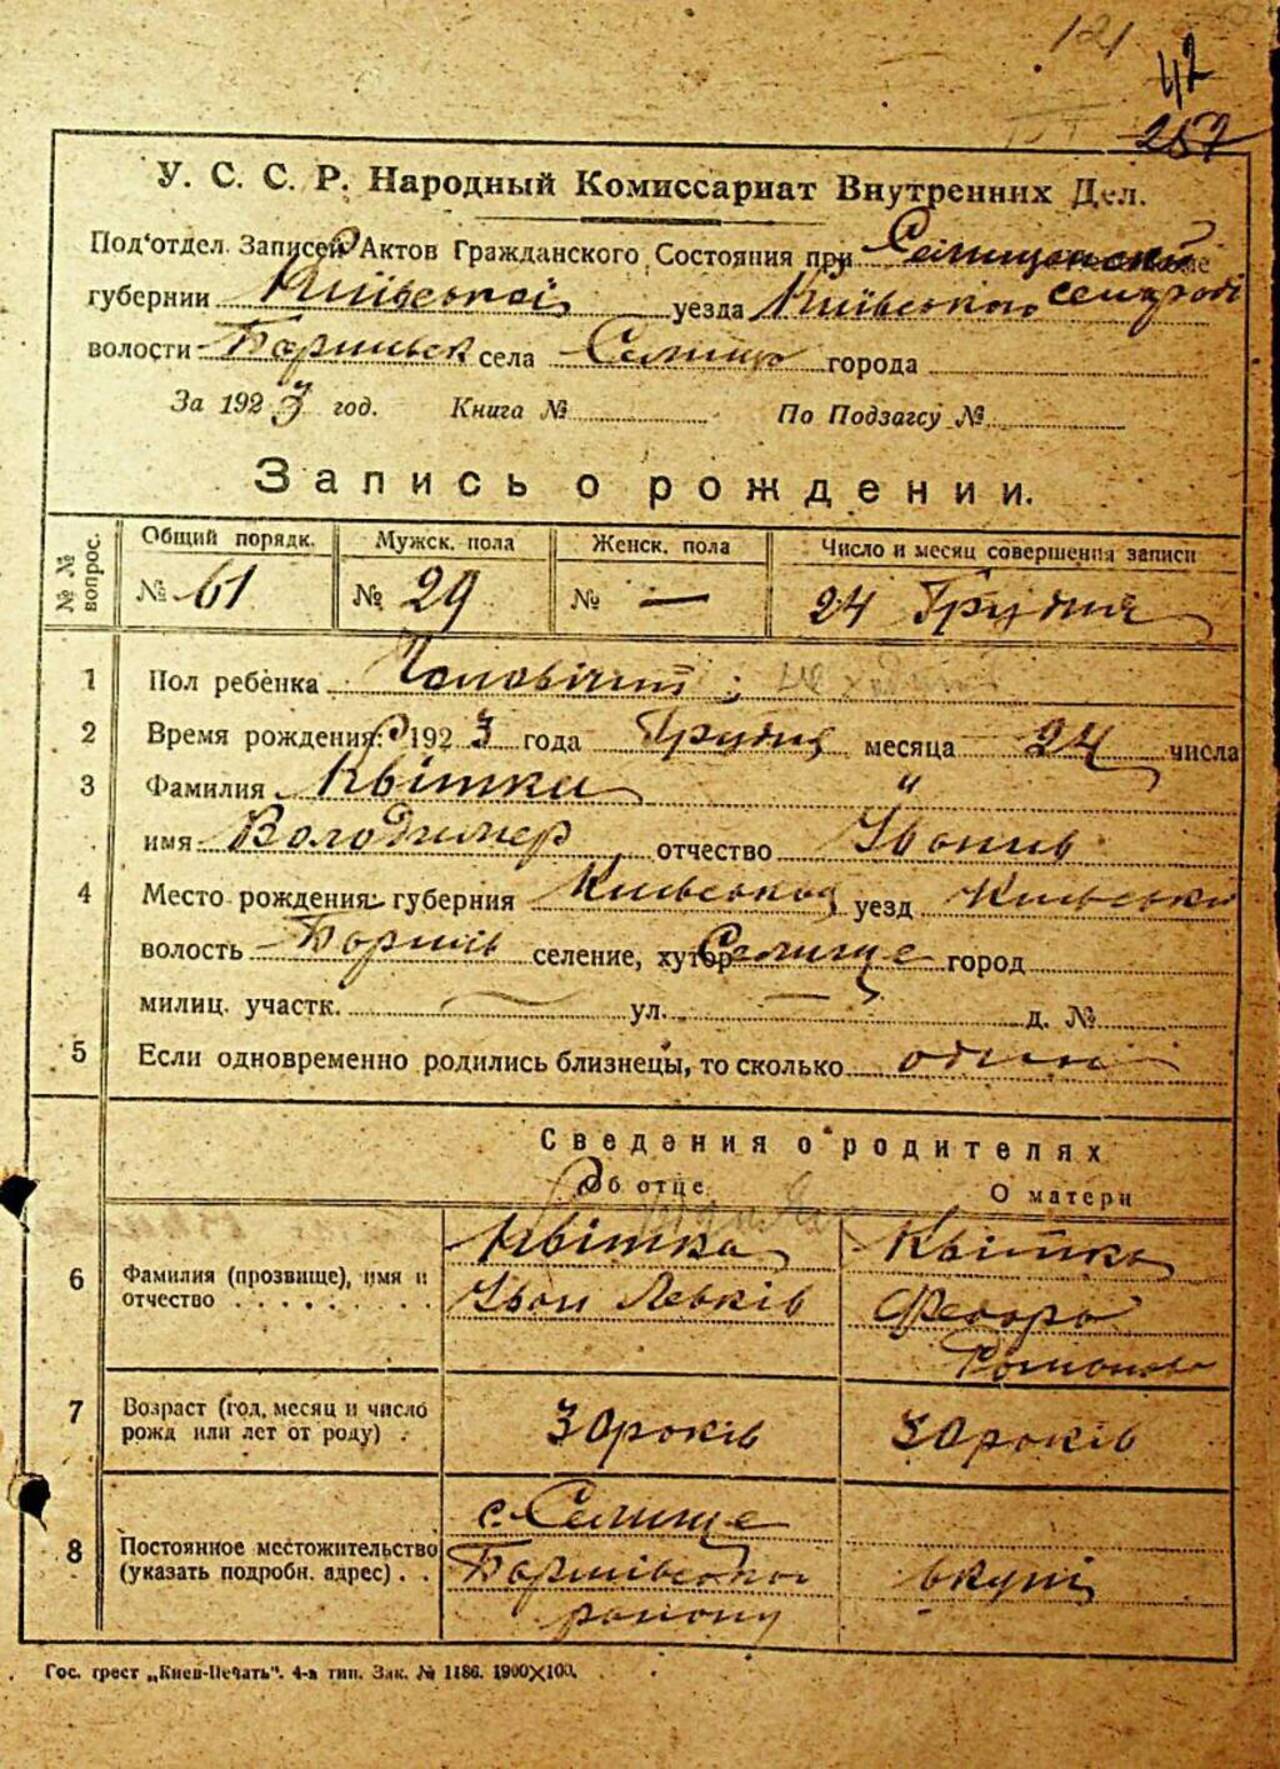 121
42
257
У. С. С. Р. Народный Комиссариат Внутренних Дел.
Под'отдел Записей Актов Гражданского Состояния при Селищанскій
губернии Київської уезда Київського сельраді
волости Баришьск села Селище города
За 1923 год. Книга № По Подзагсу №
Запись о рождении.
№ № вопрос. Общий порядк. Мужск. пола Женск. пола Число и месяц совершения записи
№ 61 № 29 № — 24 Грудня
1 Пол ребенка Чоловічий
2 Время рождения: 1923 года Грудня месяца 24 числа
3 Фамилия Квітка "
имя Володимер отчество Іванів
4 Место рождения: губерния Київської уезд Київськи
волость Баришів селение, хутор Селище город
милиц. участк. ул. — д. №
5 Если одновременно родились близнецы, то сколько один
Сведения о родителях
Об отце О матери
6 Фамилия (прозвище), имя и отчество Квітка Квітка
Іван Левків Федора
Романов
7 Возраст (год, месяц и число рожд или лет от роду) 30 років 30 років
8 Постоянное местожительство (указать подробн. адрес) с. Селище
Баришівського вкупі
району
Гос. трест „Киев-Печать". 4-я тип. Зак. № 1186. 1900×100.